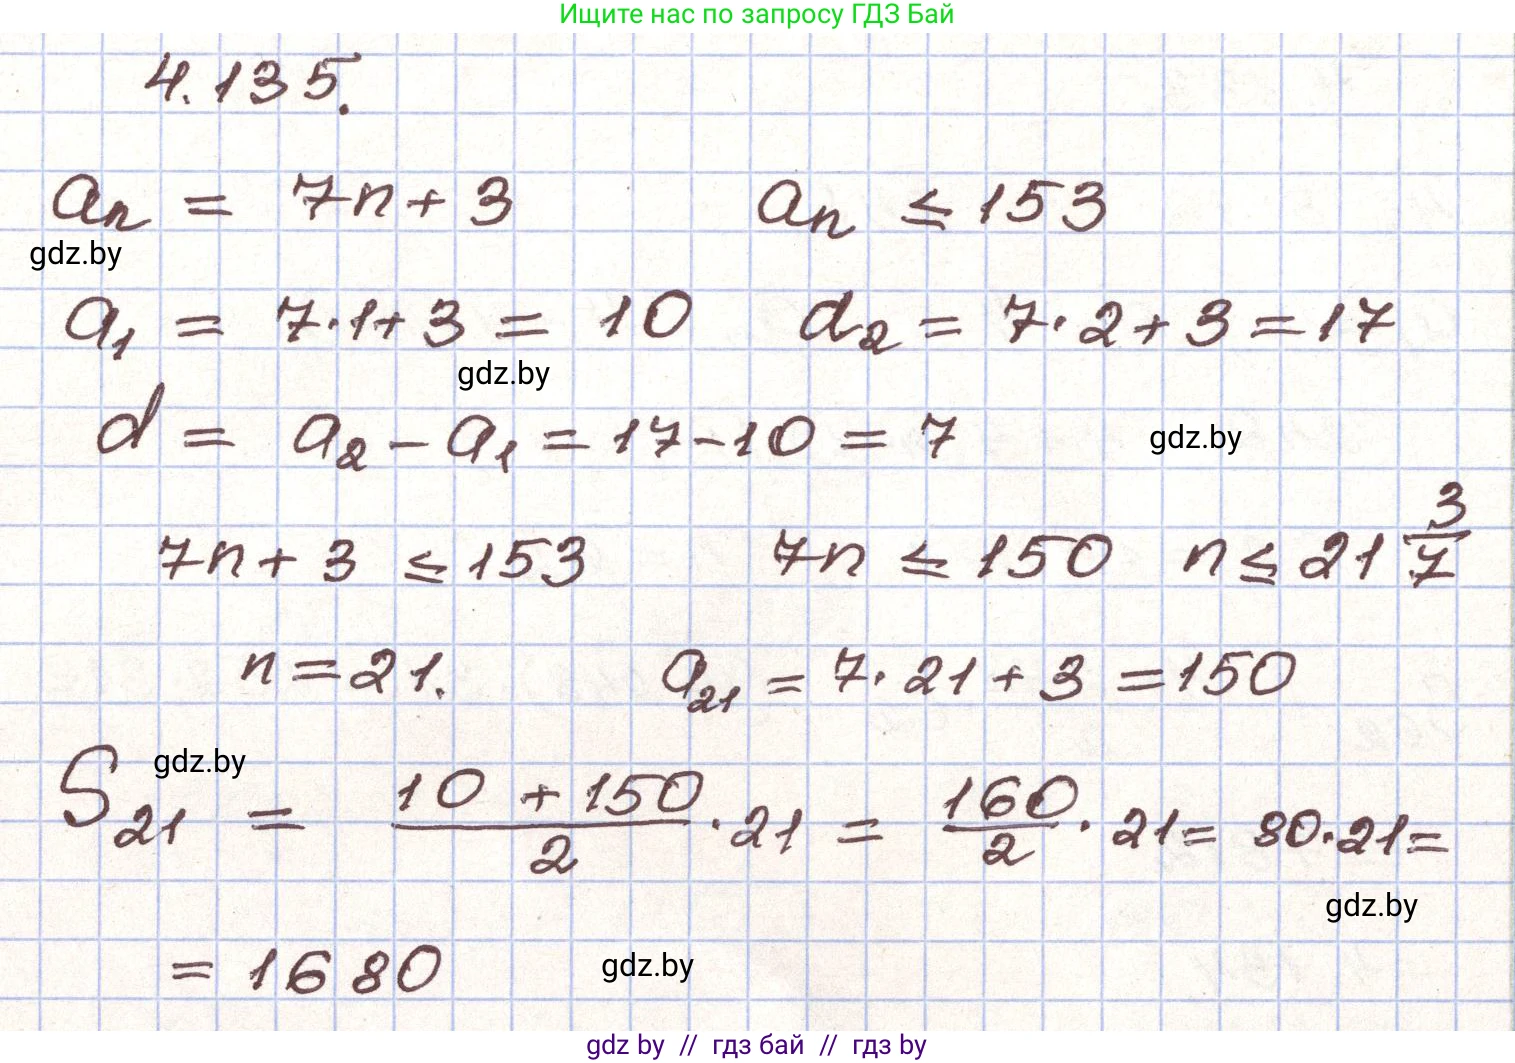 Ищите нас по запросу ГДЗ Бай
4.135.
aₙ = 7n + 3 aₙ ≤ 153
gdz.by
a₁ = 7·1 + 3 = 10 a₂ = 7·2 + 3 = 17
gdz.by
d = a₂ - a₁ = 17 - 10 = 7 gdz.by
7n + 3 ≤ 153 7n ≤ 150 n ≤ 21 3/7
n = 21. a₂₁ = 7·21 + 3 = 150
gdz.by
S₂₁ = (10 + 150)/2 · 21 = 160/2 · 21 = 80·21 =
gdz.by
= 1680 gdz.by
gdz by // гдз бай // гдз by